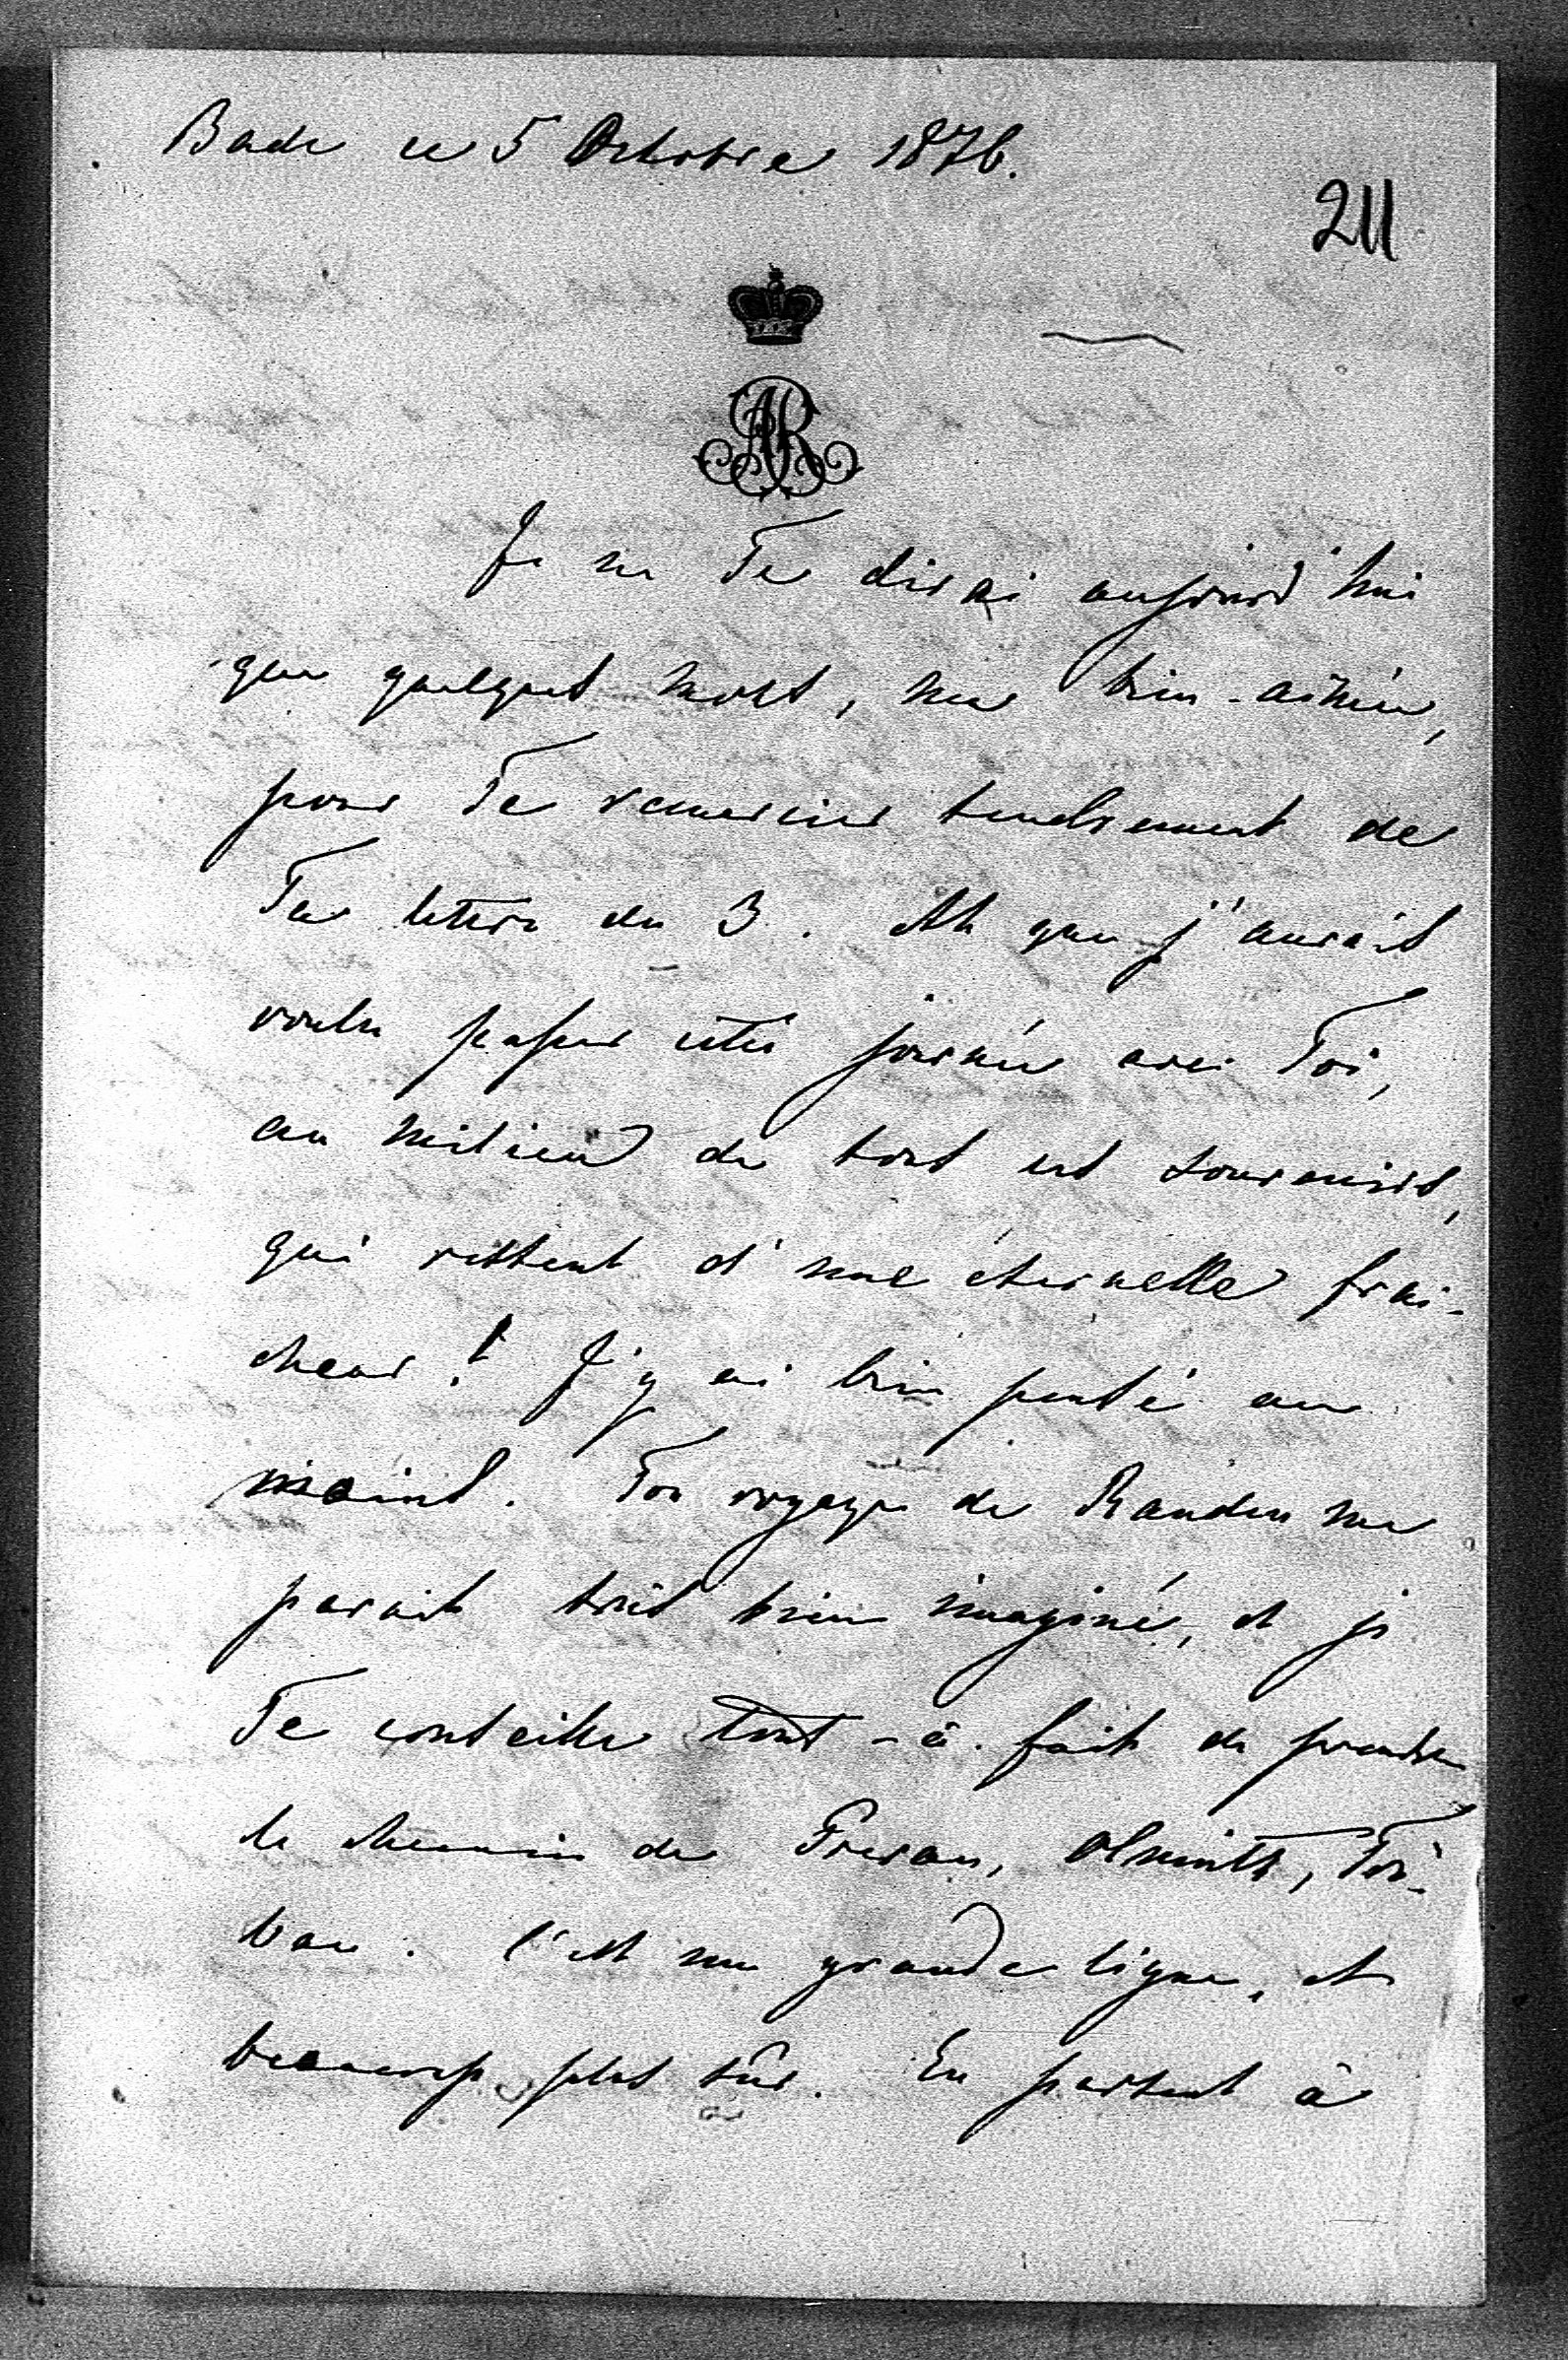 Bade ce 5 Octobre 1876.
211
AR
Je ne Te dirai aujourd'hui
que quelques mots, ma bien-aimée,
pour Te remercier tendrement de
Ta lettre du 3. Ah que j'aurais
voulu passer cette journée avec Toi,
au milieu de tous ces souvenirs,
qui restent d'une éternelle frai-
cheur! J'y ai bien pensé au
moins. Ton voyage de Rauden me
parait très bien imaginé, et je
Te conseille tout-à-fait de prendre
le chemin de Prerau, Olmütz, Tri-
bau. C'est une grande ligne, et
beaucoup plus sûr. En partant à